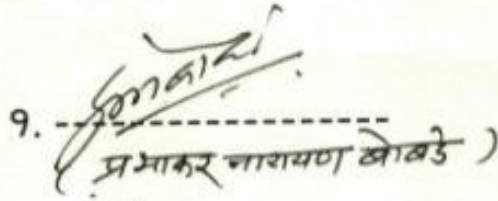 १. ----------------------
( प्रभाकर नारायण बोबडे )